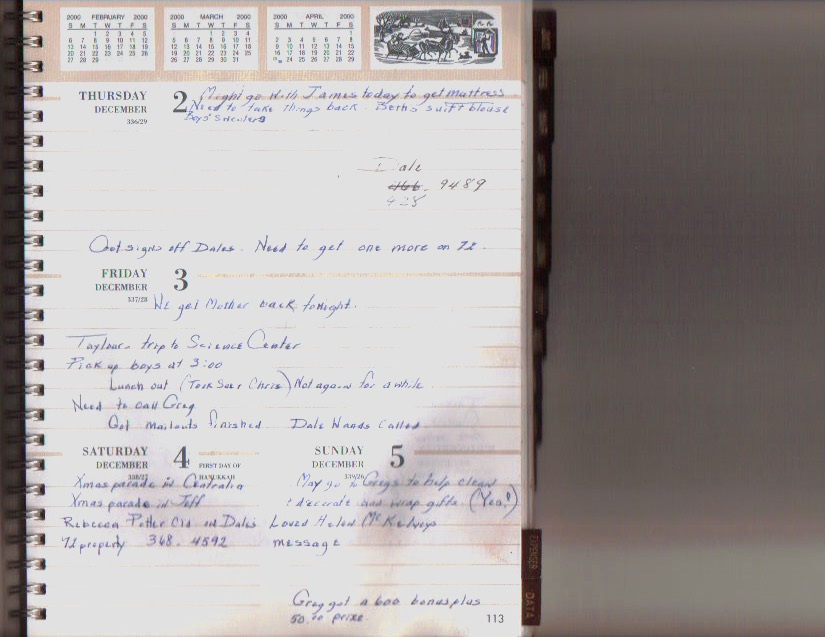 2000 FEBRUARY 2000
S M T W T F S
1 2 3 4 5
6 7 8 9 10 11 12
13 14 15 16 17 18 19
20 21 22 23 24 25 26
27 28 29
2000 MARCH 2000
S M T W T F S
1 2 3 4
5 6 7 8 9 10 11
12 13 14 15 16 17 18
19 20 21 22 23 24 25
26 27 28 29 30 31
2000 APRIL 2000
S M T W T F S
1
2 3 4 5 6 7 8
9 10 11 12 13 14 15
16 17 18 19 20 21 22
24 25 26 27 28 29
THURSDAY 2
DECEMBER
336/29
Might go with James today to get mattress
Need to take things back. Beth's suit & blouse
Boys'
Dale
466. 9489
428
Got signs off Dales. Need to get one more on 72.
FRIDAY 3
DECEMBER
337/28
We get Mother back tonight.
Taylours trip to Science Center
Pick up boys at 3:00
Lunch out (Chris) Not again for a while
Need to call Greg
Got mailouts finished Dale Hands Called
SATURDAY 4
DECEMBER
338/27
FIRST DAY OF
HANUKKAH
Xmas parade in Centralia
Xmas parade in Jeff
Rebecca Potter Cld. on Dales
72 property 368. 4592
SUNDAY 5
DECEMBER
339/26
May go to Gregs to help clean
& decorate and wrap gifts (Yea!)
Loved Helen McKelveys
message
Greg got a 600 bonus plus
50.00 prize
113
EXPENSES
DATA